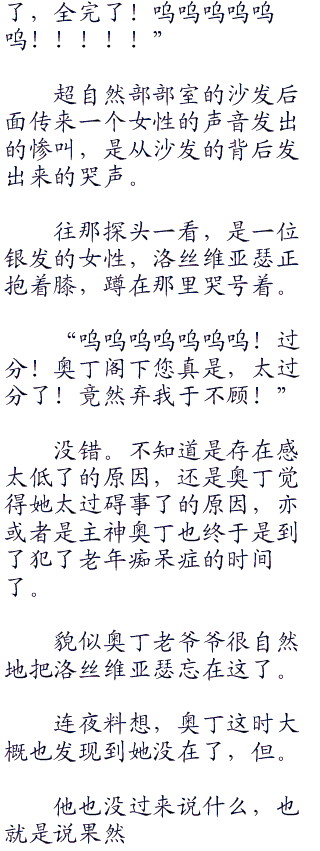 了，全完了！呜呜呜呜呜
呜！！！！！”
超自然部部室的沙发后
面传来一个女性的声音发出
的惨叫，是从沙发的背后发
出来的哭声。
往那探头一看，是一位
银发的女性，洛丝维亚瑟正
抱着膝，蹲在那里哭号着。
“呜呜呜呜呜呜呜！过
分！奥丁阁下您真是，太过
分了！竟然弃我于不顾！”
没错。不知道是存在感
太低了的原因，还是奥丁觉
得她太过碍事了的原因，亦
或者是主神奥丁也终于是到
了犯了老年痴呆症的时间
了。
貌似奥丁老爷爷很自然
地把洛丝维亚瑟忘在这了。
连夜料想，奥丁这时大
概也发现到她没在了，但。
他也没过来说什么，也
就是说果然